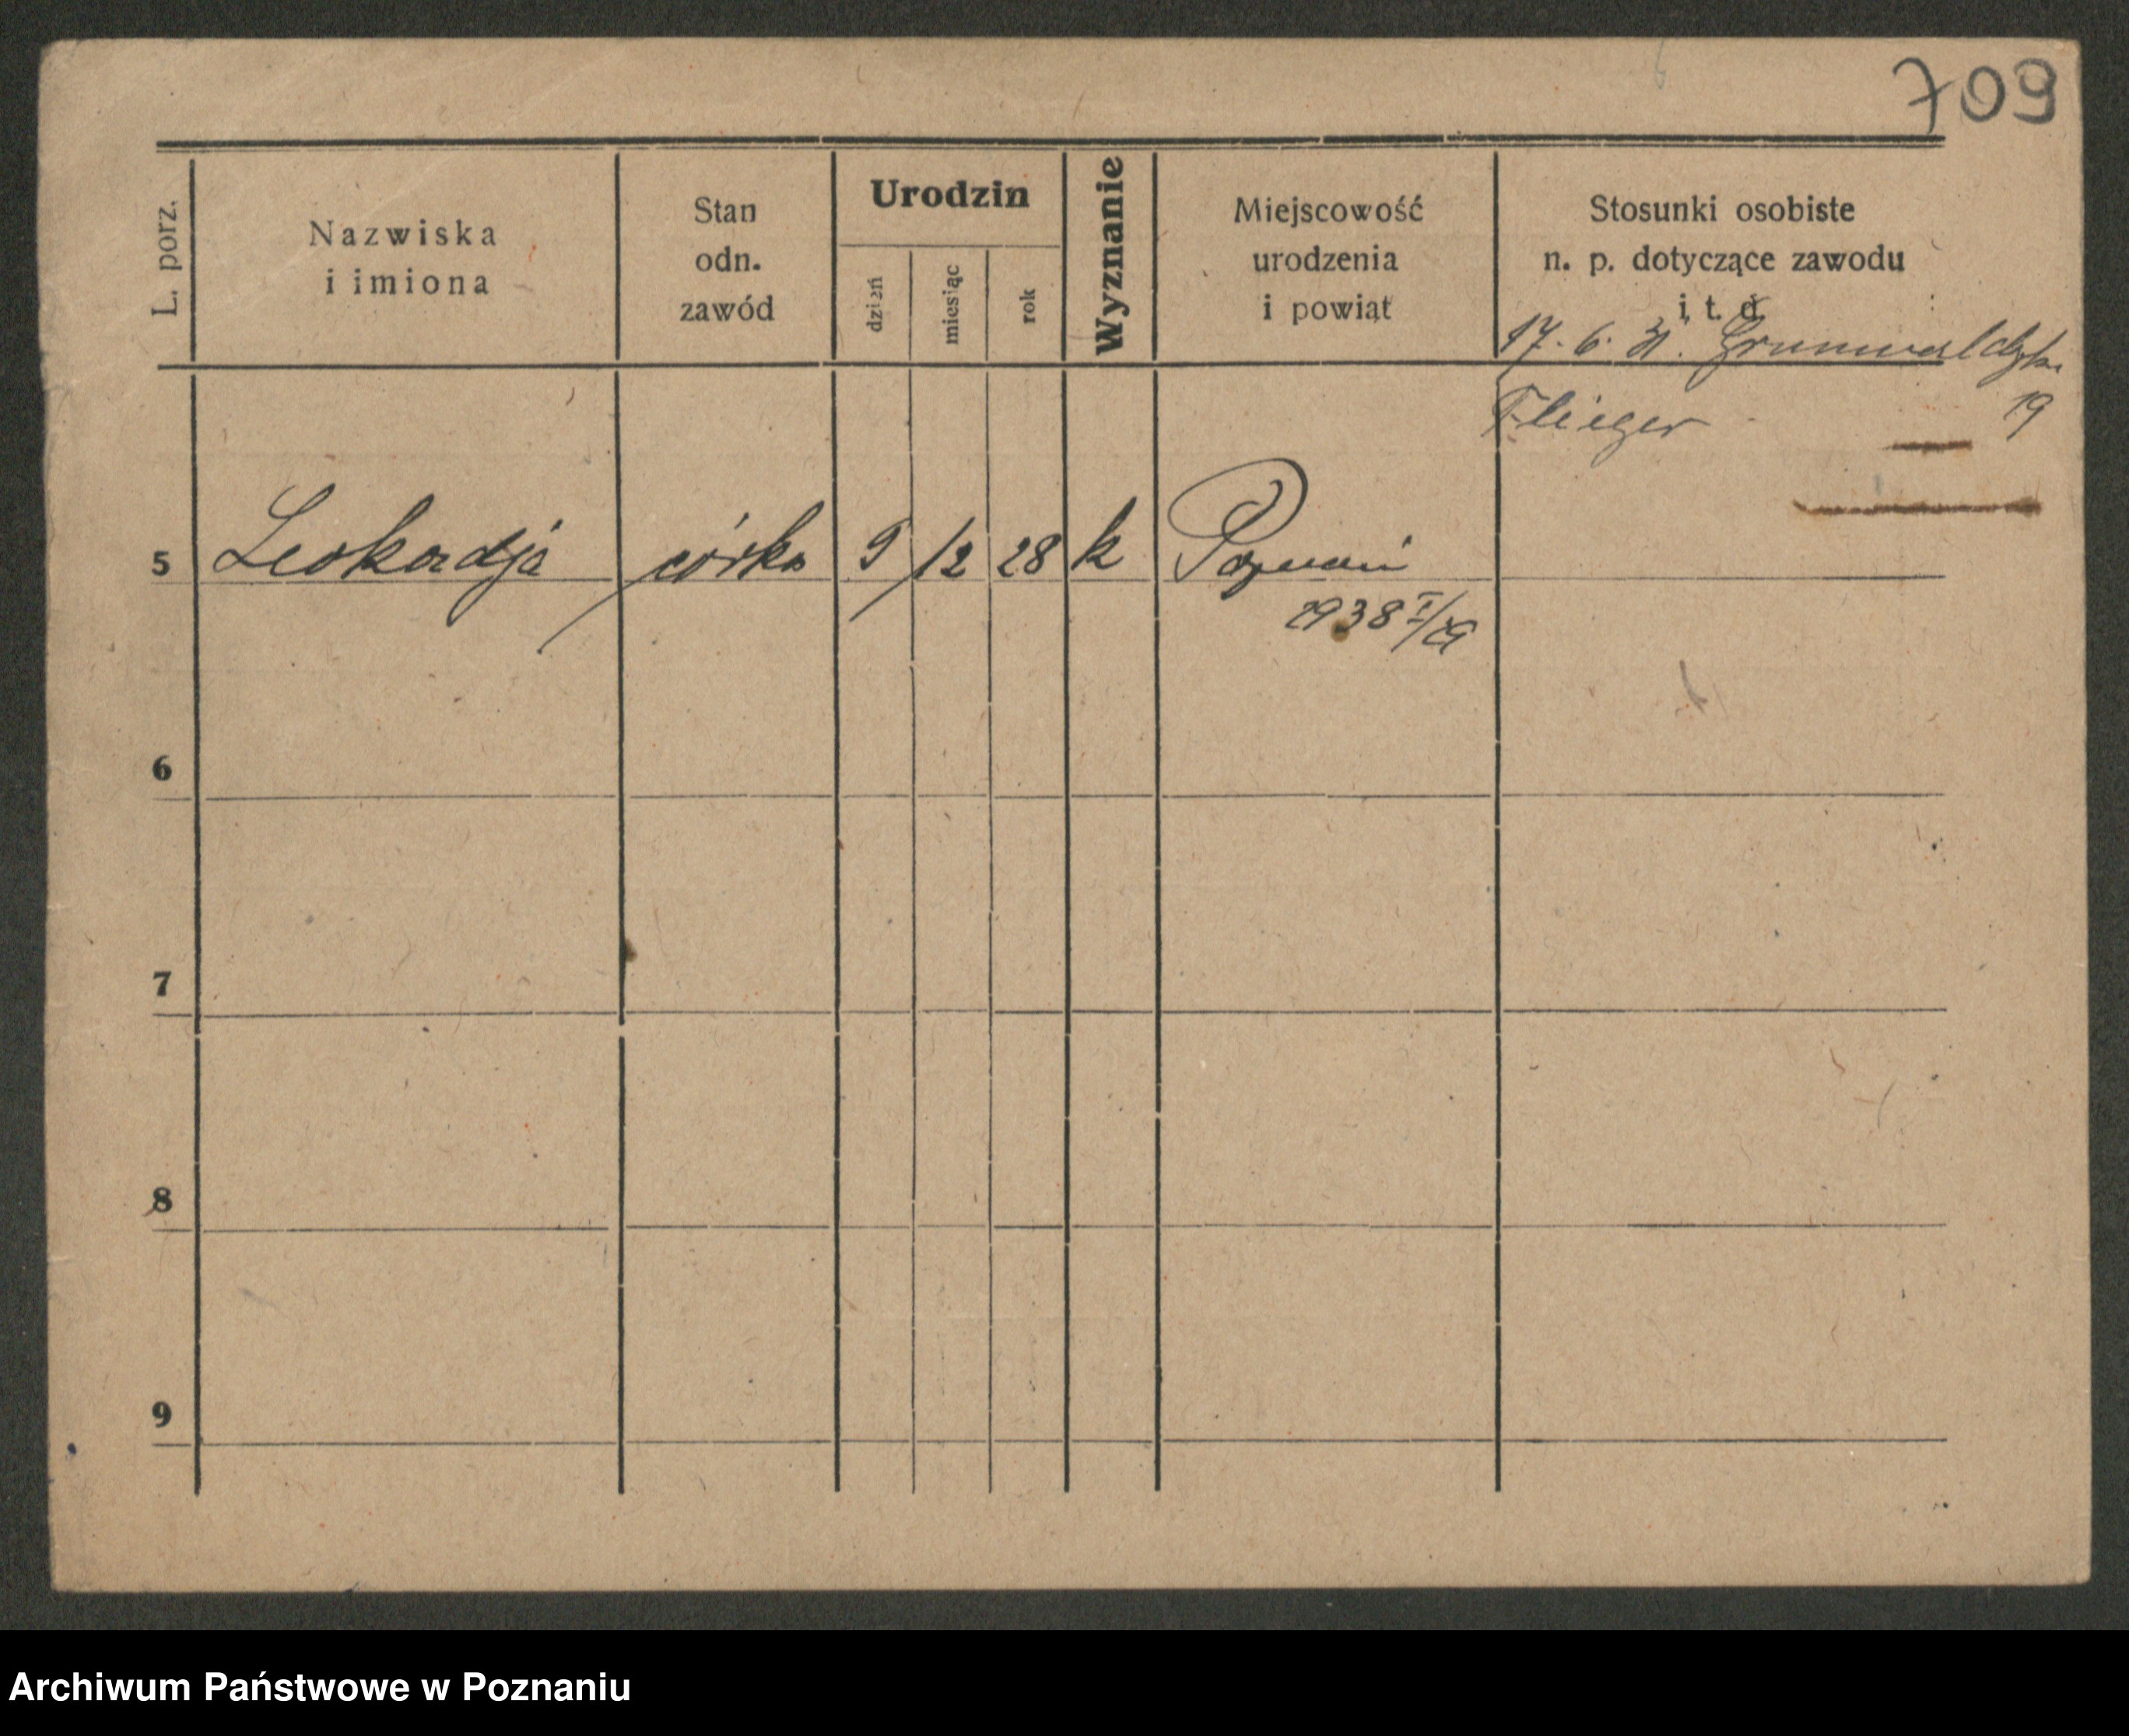 709
L. porz.
Nazwiska
i imiona
Stan
odn.
zawód
Urodzin
dzień
miesiąc
rok
Wyznanie
Miejscowość
urodzenia
i powiat
Stosunki osobiste
n. p. dotyczące zawodu
i t. d.
17. 6. 31.
Flieger 19
5 Leokadja córka 9 12 28 k Poznań
1938 I/29
6
7
8
9
Archiwum Państwowe w Poznaniu